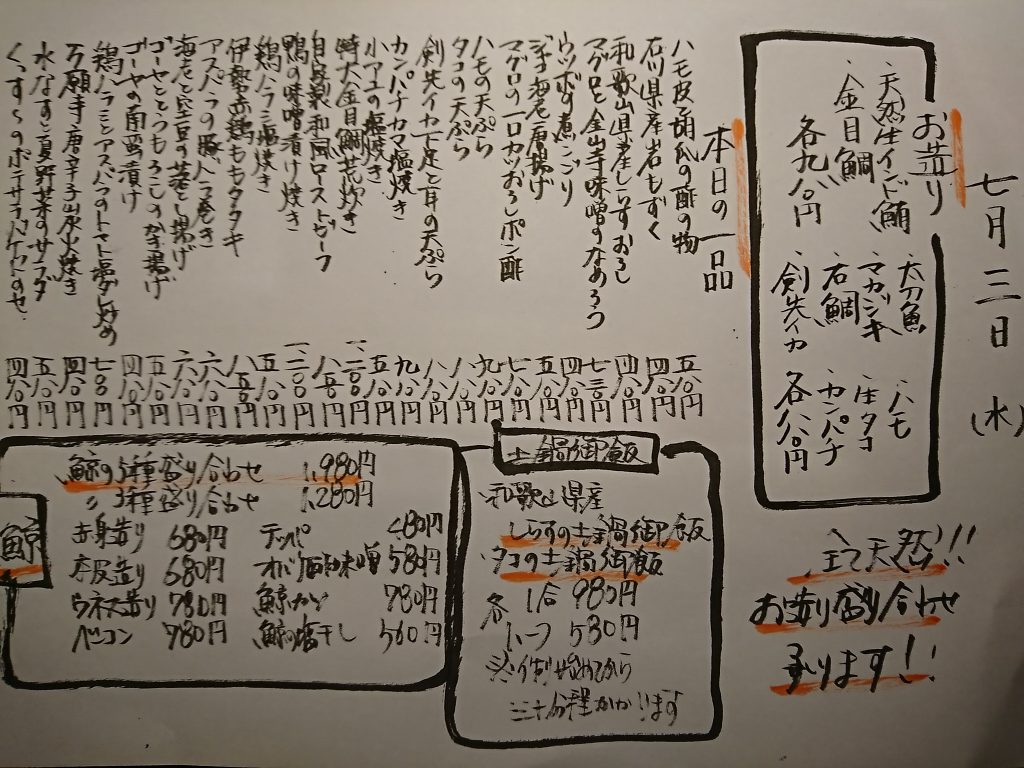 七月三日(水)
お造り
・天然生インド鮪
・金目鯛
各九八〇円
・太刀魚
・マカジキ
・石鯛
・剣先イカ
・ハモ
・生タコ
・カンパチ
各八八〇円
全て天然!!
お造り盛り合わせ
承ります!!
本日の一品
ハモ皮と胡瓜の酢の物 五八〇円
石川県産岩もずく 四八〇円
和歌山県産しらすおろし 四八〇円
マグロと金山寺味噌のなめろう 七三〇円
ウツボの煮こごり 四八〇円
海老唐揚げ 五八〇円
マグロの一口カツおろしポン酢 七八〇円
ハモの天ぷら 九八〇円
タコの天ぷら 八八〇円
剣先イカ下足と耳の天ぷら 八八〇円
カンパチカマ塩焼き 九八〇円
小アユの塩焼き 五八〇円
特大金目鯛兜炊き 一、二〇〇円
自家製和風ローストビーフ 八五〇円
鴨の味噌漬け焼き 一、二〇〇円
鶏ハラミ塩焼き 五八〇円
伊勢赤鶏ももタタキ 八五〇円
アスパラの豚バラ巻き 六八〇円
海老と空豆の落とし揚げ 六八〇円
ゴーヤととうもろこしのかき揚げ 五八〇円
ゴーヤの南蛮漬け 四八〇円
鶏ハラミとアスパラのトマト塩だし炒め 七〇〇円
万願寺唐辛子炭火焼き 四八〇円
水なすと夏野菜のサラダ 五八〇円
くんすたまのポテサラバケットのせ 四八〇円
土鍋御飯
・和歌山県産
しらすの土鍋御飯
・タコの土鍋御飯
各 1合 980円
ハーフ 530円
※御注文から
三十分程かかります
鯨
鯨の5種盛り合わせ 1,980円
〃 3種盛り合わせ 1,280円
赤身造り 680円
本皮造り 680円
ウネス造り 780円
ベーコン 780円
テッパ 480円
オバケ酢味噌 580円
鯨カツ 780円
鯨の塩干し 560円